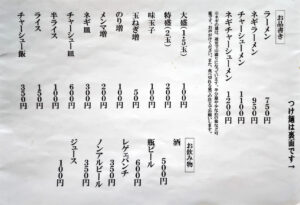 つけ麺は裏面です→
お品書き
ラーメン 750円
ネギラーメン 950円
チャーシューメン 1100円
ネギチャーシューメン 1200円
大盛(1.5玉) 100円
特盛(2玉) 200円
味玉子 100円
玉ねぎ増 50円
のり増 100円
メンマ増 200円
ネギ皿 300円
チャーシュー皿 600円
半ライス 100円
ライス 150円
チャーシュー飯 350円
お飲み物
酒 500円
瓶ビール 600円
レゲェパンチ 350円
ノンアルビール 350円
ジュース 100円